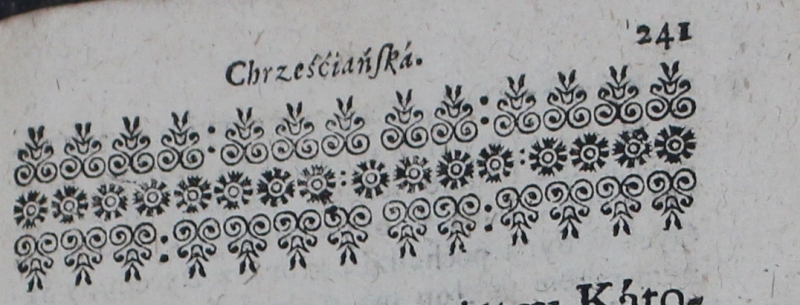 Chrześćiáńſká. 241
Káto-